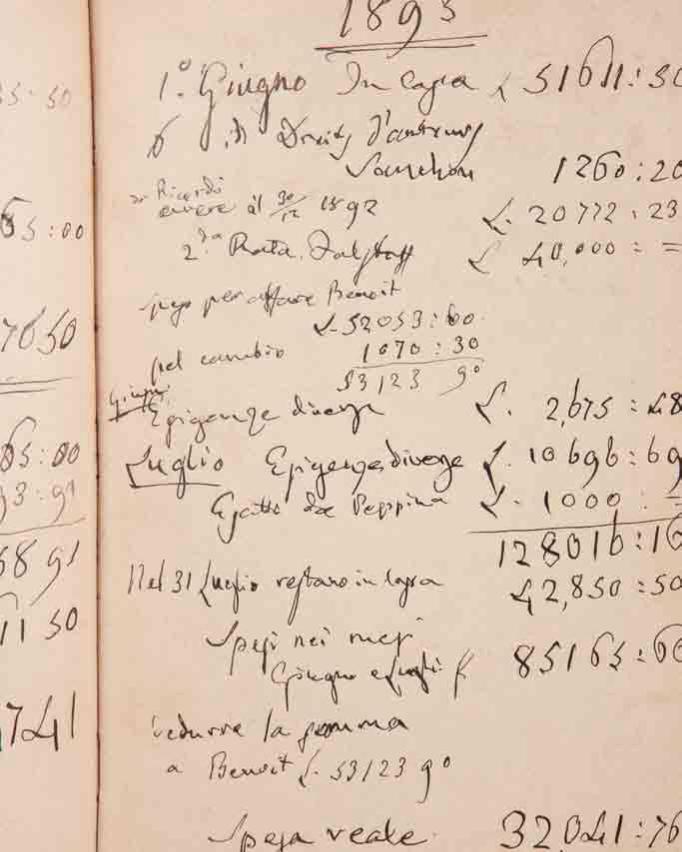 1893
1.º Giugno In Cassa £ 51611:50
6 di Droits d'auteurs
Souchon 1260:20
da Ricordi
avere al 30/12 1892 £. 20772.23
2.da Rata Falstaff £ 40,000 : =
pago per affare Benoit
£. 52053:60
pel cambio 1070:30
53123 90
Giugno
Esigenze diverse £. 2,675:48
Luglio Esigenze diverse £. 10696:69
Esatto da Peppina £. 1000 : =
128016:10
Nel 31 Luglio restano in Cassa 42,850:50
Spesi nei mesi
Giugno e Luglio £ 85165:60
dedurre la somma
a Benoit £. 53123 90
Spesa reale 32041:70